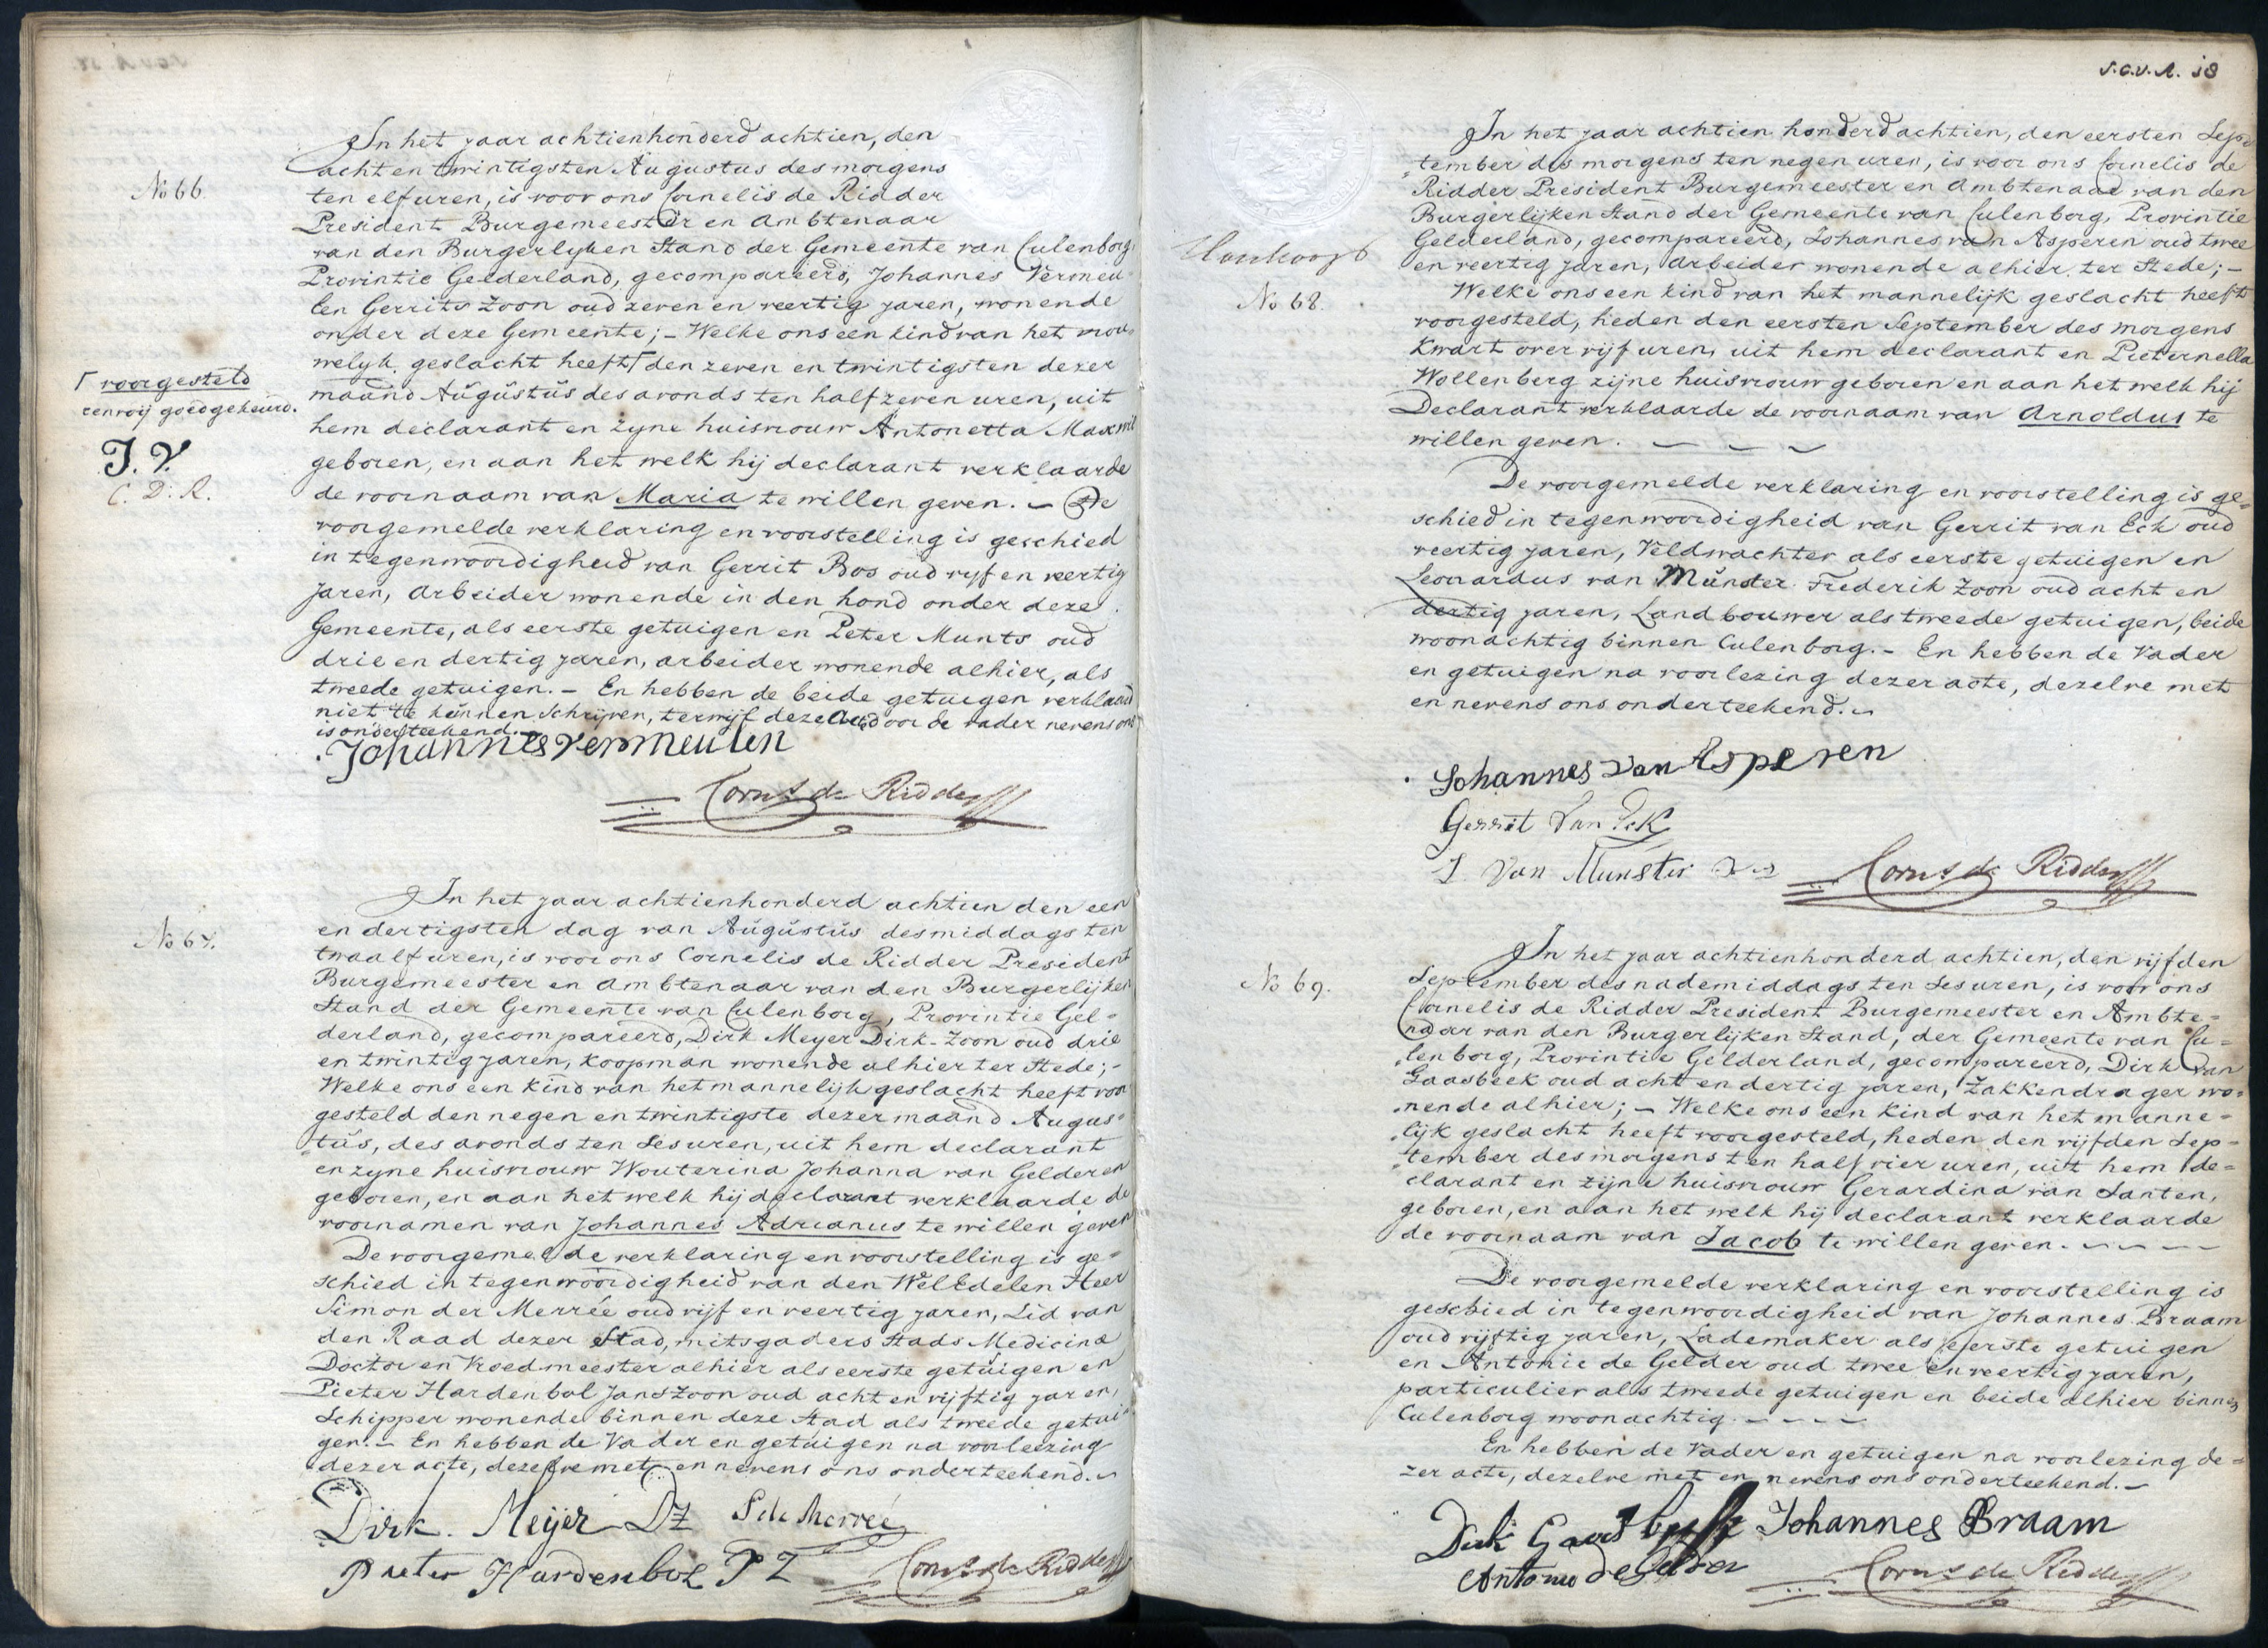 No 66.
In het jaar achtienhonderd achtien, den
acht en twintigsten Augustus des morgens
ten elf uren, is voor ons Cornelis de Ridder
President Burgemeester en Ambtenaar
van den Burgerlyken Stand der Gemeente van Culenborg
Provintie Gelderland, gecompareerd, Johannes Vermeu-
len Gerrits Zoon oud zeven en veertig jaren, wonende
onder deze Gemeente; - Welke ons een kind van het vrou-
welyk geslacht heeft Γ den zeven en twintigsten dezer
maand Augustus des avonds ten half zeven uren, uit
hem declarant en zyne huisvrouw Antonetta
geboren, en aan het welk hij declarant verklaarde
de voornaam van Maria te willen geven. - De
voorgemelde verklaring en voorstelling is geschied
in tegenwoordigheid van Gerrit Bos oud vyf en veertig
Jaren, Arbeider wonende in den hond onder deze
Gemeente, als eerste getuigen en Peter Munts oud
drie en dertig jaren, arbeider wonende alhier, als
tweede getuigen. - En hebben de beide getuigen verklaard
niet te kunnen Schrijven, terwijl deze Acte door de vader nevens ons
is onderteekend. -
Γ voorgesteld
renvoij goedgekeurd.
J. V.
C. D. R.
Johannes vermeulen
Corns de Ridder
No 67.
In het jaar achtienhonderd achtien den een
en dertigsten dag van Augustus des middags ten
twaalf uren, is voor ons Cornelis de Ridder President
Burgemeester en Ambtenaar van den Burgerlijken
Stand der Gemeente van Culenborg, Provintie Gel-
derland, gecompareerd, Dirk Meyer Dirk-Zoon oud drie
en twintig jaren, koopman wonende alhier ter Stede; -
Welke ons een kind van het mannelijk geslacht heeft voor
gesteld den negen en twintigste dezer maand Augus-
tus, des avonds ten Ses uren, uit hem declarant
en zyne huisvrouw Wouterina Johanna van Gelderen
geboren, en aan het welk hij declarant verklaarde de
voornamen van Johannes Adrianus te willen geven
De voorgemelde verklaring en voorstelling is ge-
schied in tegenwoordigheid van den WelEdelen Heer
Simon der Merrée oud vijf en veertig jaren, Lid van
den Raad dezer Stad, mitsgaders Stads Medicinæ
Doctor en Vroedmeester alhier als eerste getuigen en
Pieter Hardenbol Jans Zoon oud acht en vijftig jaren,
Schipper wonende binnen deze stad als tweede getui-
gen. - En hebben de Vader en getuigen na voorleezing
dezer acte, dezelve met en nevens ons onderteekend.
Dirk. Meijer DZ S de Merreé
Pieter Hardenbol PZ
Corns de Ridder
S.C.V.A. 18
Honkoop
No 68.
In het jaar achtien honderd achtien, den eersten Sep-
tember des morgens ten negen uren, is voor ons Cornelis de
Ridder President Burgemeester en Ambtenaar van den
Burgerlijken Stand der Gemeente van Culenborg, Provintie
Gelderland, gecompareerd, Johannes van Asperen oud twee
en veertig jaren, Arbeider wonende alhier ter Stede; -
Welke ons een kind van het mannelijk geslacht heeft
voorgesteld, heden den eersten September des morgens
Kwart over vijf uren, uit hem declarant en Pieternella
Wollenberg zijne huisvrouw geboren en aan het welk hij
Declarant verklaarde de voornaam van Arnoldus te
willen geven. - - -
De voorgemelde verklaring en voorstelling is ge-
schied in tegenwoordigheid van Gerrit van Eck oud
veertig jaren, Veldwachter als eerste getuigen en
Leonardus van Munster Frederik Zoon oud acht en
dertig jaren, Landbouwer als tweede getuigen, beide
woonachtig binnen Culenborg. - En hebben de Vader
en getuigen na voorlezing dezer acte, dezelve met
en nevens ons onderteekend. -
Johannes van Asperen
Gerrit Van Eck
L Van Munster
Corns de Ridder
No 69.
In het jaar achtienhonderd achtien, den vijfden
September des nademiddags ten Ses uren, is voor ons
Cornelis de Ridder President Burgemeester en Ambte-
naar van den Burgerlijken Stand, der Gemeente van Cu-
lenborg, Provintie Gelderland, gecompareerd, Dirk van
Gaasbeek oud acht en dertig jaren, Zakkendrager wo-
nende alhier; - Welke ons een kind van het manne-
lijk geslacht heeft voorgesteld, heden den vijfden Sep-
tember des morgens ten half vier uren, uit hem de-
clarant en zijne huisvrouw Gerardina van Santen,
geboren, en aan het welk hij declarant verklaarde
de voornaam van Jacob te willen geven. - - - -
De voorgemelde verklaring en voorstelling is
geschied in tegenwoordigheid van Johannes Braam
oud vijftig jaren, Lademaker als eerste getuigen
en Antonie de Gelder oud twee en veertig jaren,
particulier als tweede getuigen en beide alhier binnen
Culenborg woonachtig. - - - -
En hebben de Vader en getuigen na voorlezing de-
zer acte, dezelve met en nevens ons onderteekend. -
Dirk Gaasbeek Johannes Braam
Antonie de Gelder
Corns de Ridder